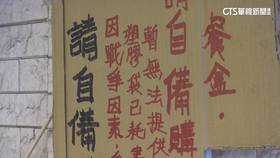 CTS華視新聞
餐盒,
請自備購
暫無法提供
塑膠袋已耗
因戰爭因素,
請自備